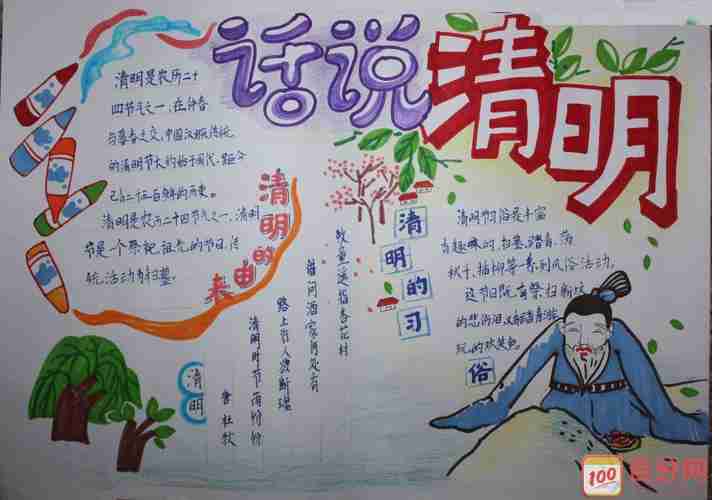 话说清明
清明是农历二十
四节气之一,在仲春
与暮春之交,中国汉族传统
的清明节大约始于周代,距今
已有二千五百多年的历史。
清明是农历二十四节气之一,清明
节是一个祭祀祖先的节日,传
统活动为扫墓。
清明的由来
清明
唐 杜牧
清明时节雨纷纷
路上行人欲断魂
借问酒家何处有
牧童遥指杏花村
清明的习俗
清明节习俗是丰富
有趣的,扫墓、踏青、荡
秋千、插柳等一系列风俗活动。
这节日既有祭扫新坟
的悲伤泪,又有踏青游
玩的欢笑声。
100
百分网